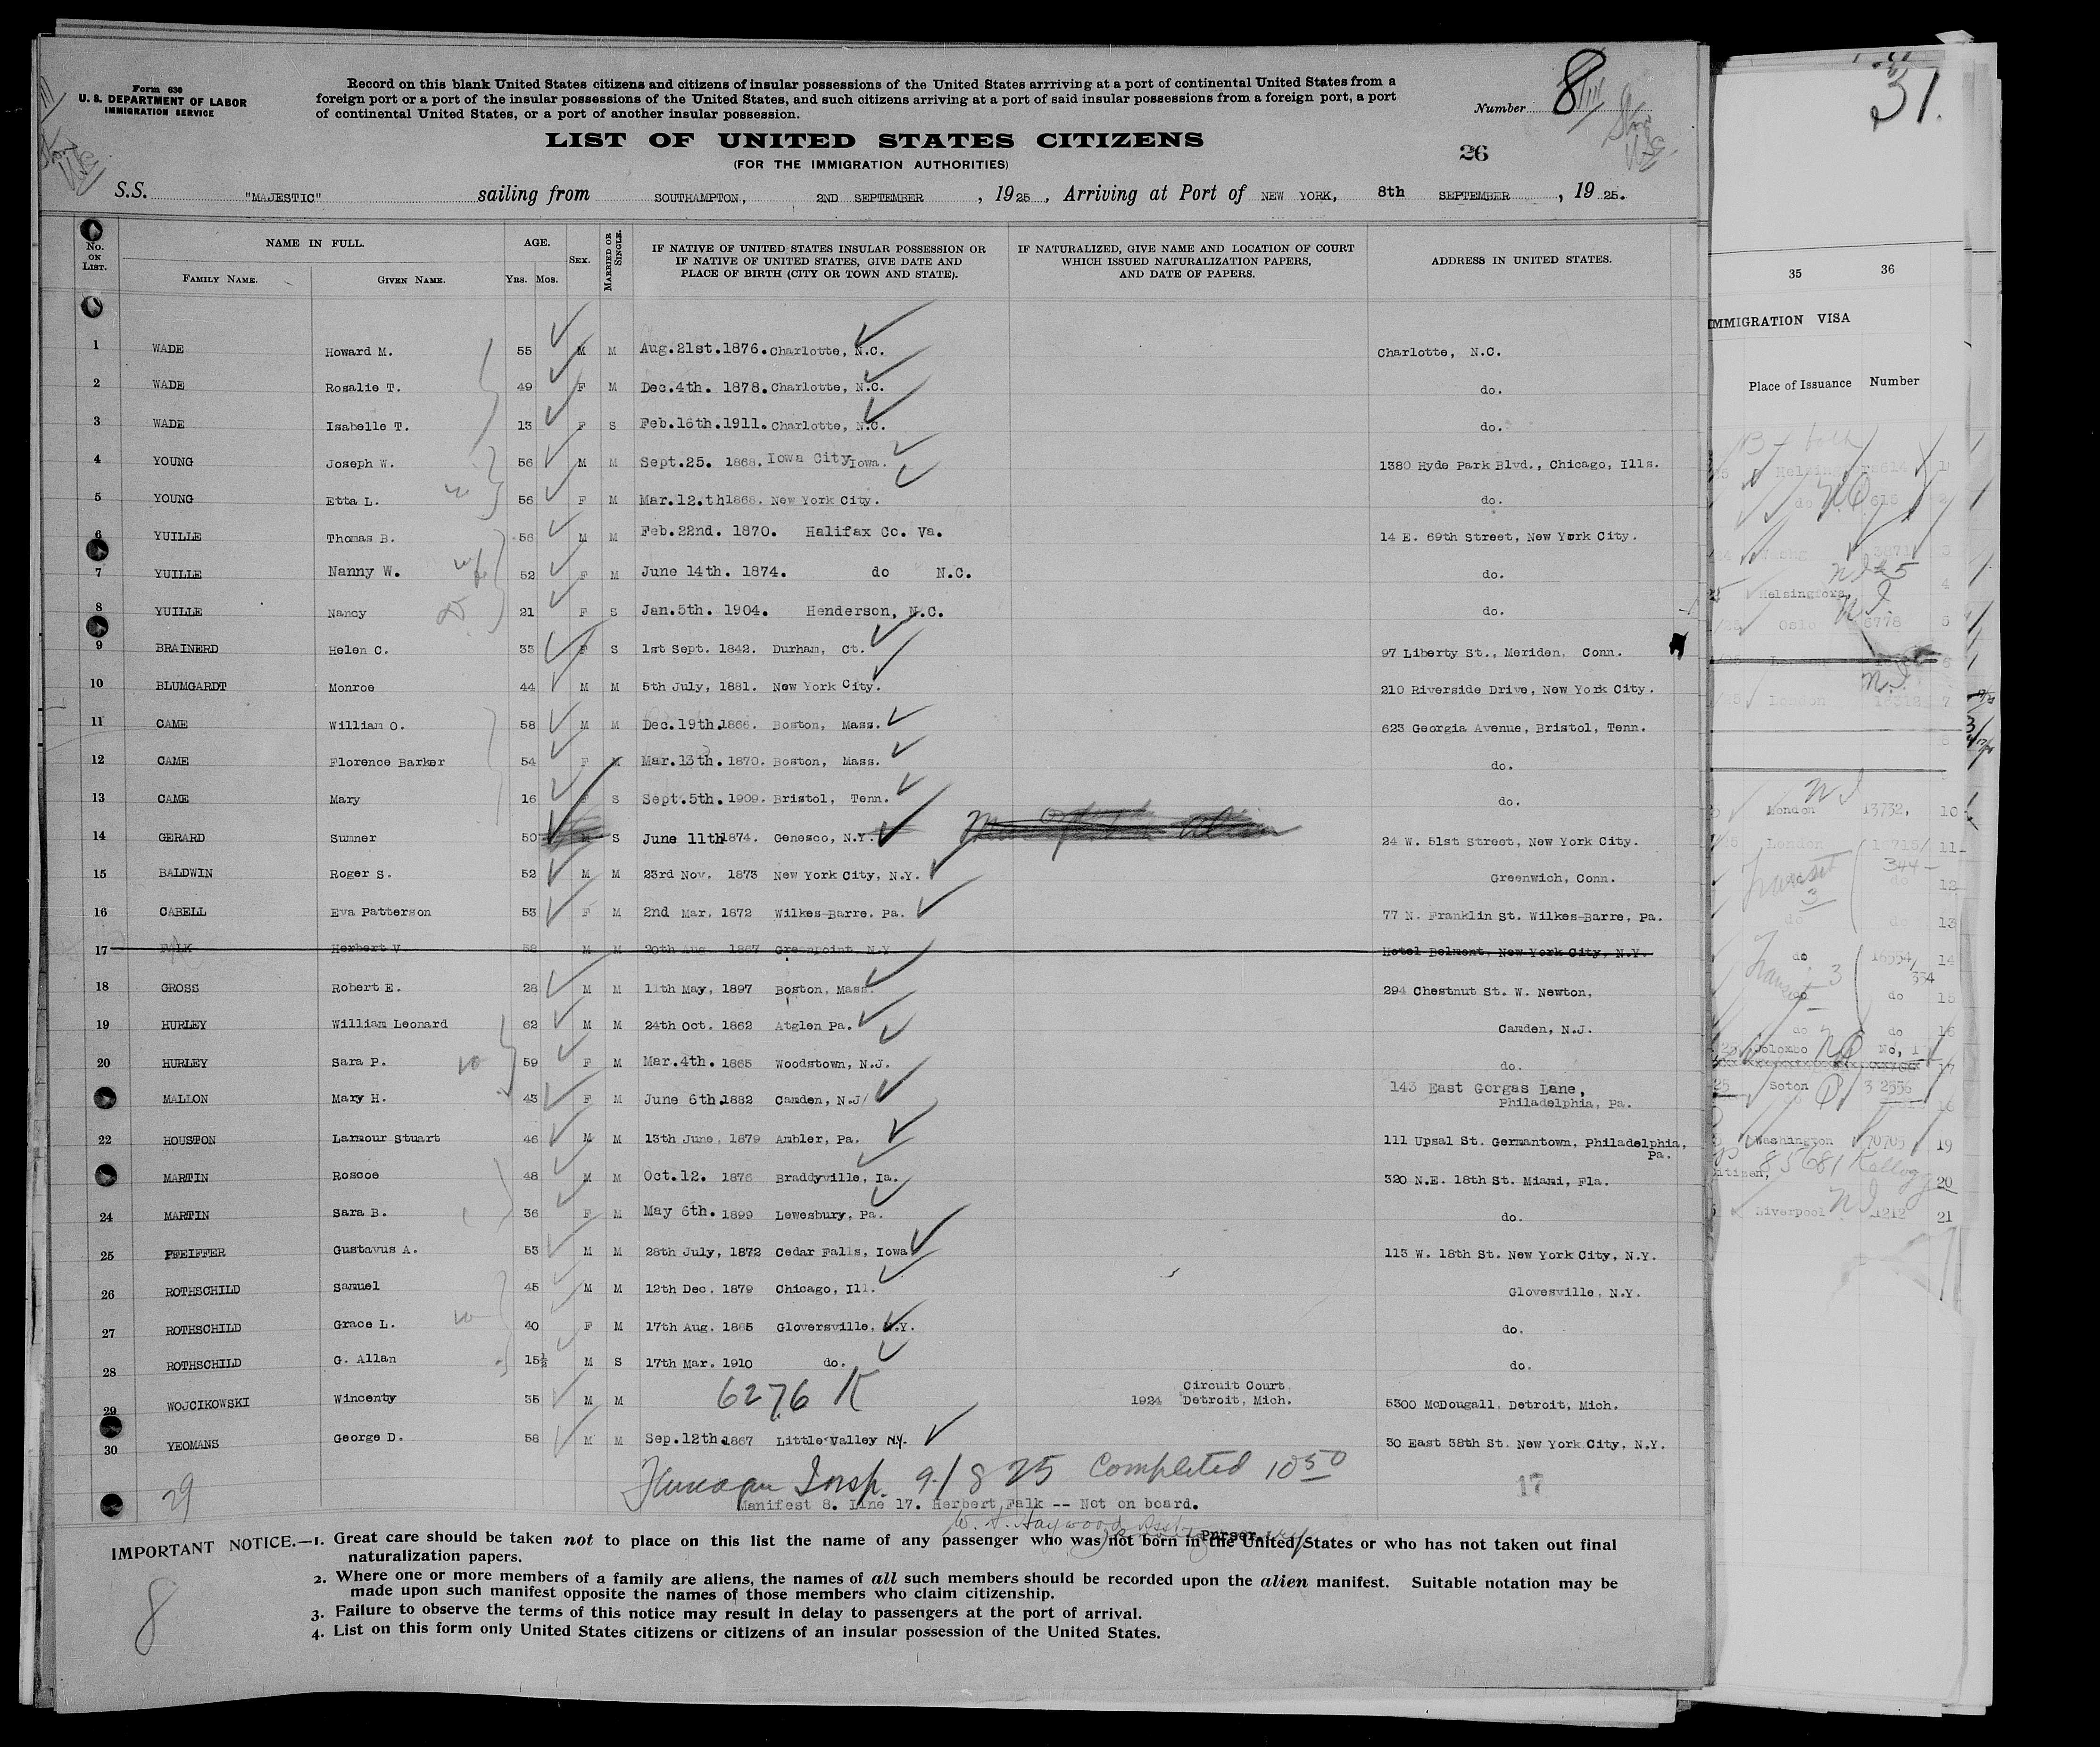 Form 630
U. S. DEPARTMENT OF LABOR
IMMIGRATION SERVICE
Record on this blank United States citizens and citizens of insular possessions of the United States arrriving at a port of continental United States from a
foreign port or a port of the insular possessions of the United States, and such citizens arriving at a port of said insular possessions from a foreign port, a port
of continental United States, or a port of another insular possession.
Number 8
LIST OF UNITED STATES CITIZENS
(FOR THE IMMIGRATION AUTHORITIES)
26
S.S. "MAJESTIC" sailing from SOUTHAMPTON, 2ND SEPTEMBER, 1925, Arriving at Port of NEW YORK, 8th SEPTEMBER, 1925.
No. ON LIST. NAME IN FULL. FAMILY NAME. GIVEN NAME. AGE. YRS. MOS. SEX. MARRIED OR SINGLE. IF NATIVE OF UNITED STATES INSULAR POSSESSION OR IF NATIVE OF UNITED STATES, GIVE DATE AND PLACE OF BIRTH (CITY OR TOWN AND STATE). IF NATURALIZED, GIVE NAME AND LOCATION OF COURT WHICH ISSUED NATURALIZATION PAPERS, AND DATE OF PAPERS. ADDRESS IN UNITED STATES.
1 WADE Howard M. 55 M M Aug.21st.1876. Charlotte, N.C. Charlotte, N.C.
2 WADE Rosalie T. 49 F M Dec.4th. 1878. Charlotte, N.C. do.
3 WADE Isabelle T. 13 F S Feb.16th.1911. Charlotte, N.C. do.
4 YOUNG Joseph W. 56 M M Sept.25. 1868. Iowa City Iowa. 1380 Hyde Park Blvd., Chicago, Ills.
5 YOUNG Etta L. 56 F M Mar.12.th1868. New York City. do.
6 YUILLE Thomas B. 56 M M Feb.22nd. 1870. Halifax Co. Va. 14 E. 69th Street, New York City.
7 YUILLE Nanny W. 52 F M June 14th. 1874. do N.C. do.
8 YUILLE Nancy 21 F S Jan.5th. 1904. Henderson, N.C. do.
9 BRAINERD Helen C. 33 F S 1st Sept. 1842. Durham, Ct. 97 Liberty St., Meriden, Conn.
10 BLUMGARDT Monroe 44 M M 5th July, 1881. New York City. 210 Riverside Drive, New York City.
11 CAME William O. 58 M M Dec.19th.1866. Boston, Mass. 623 Georgia Avenue, Bristol, Tenn.
12 CAME Florence Barker 54 F M Mar.13th. 1870. Boston, Mass. do.
13 CAME Mary 16 F S Sept.5th. 1909. Bristol, Tenn. do.
14 GERARD Sumner 50 M S June 11th1874. Genesco, N.Y. 24 W. 51st Street, New York City.
15 BALDWIN Roger S. 52 M M 23rd Nov. 1873 New York City, N.Y. Greenwich, Conn.
16 CABELL Eva Patterson 53 F M 2nd Mar. 1872 Wilkes-Barre. Pa. 77 N. Franklin St. Wilkes-Barre, Pa.
17 FALK Herbert V. 58 M M 20th Aug. 1867 Greenpoint, N.Y. Hotel Belmont, New York City, N.Y.
18 GROSS Robert E. 28 M M 11th May, 1897 Boston, Mass. 294 Chestnut St. W. Newton.
19 HURLEY William Leonard 62 M M 24th Oct. 1862 Atglen Pa. Camden, N.J.
20 HURLEY Sara P. 59 F M Mar.4th. 1865 Woodstown, N.J. do.
MALLON Mary H. 43 F M June 6th.1882 Camden, N.J/ 143 East Gorgas Lane,
Philadelphia, Pa.
22 HOUSTON Larmour Stuart 46 M M 13th June, 1879 Ambler, Pa. 111 Upsal St. Germantown, Philadelphia,
Pa.
MARTIN Roscoe 48 M M Oct.12. 1876 Braddyville, Ia. 320 N.E. 18th St. Miami, Fla.
24 MARTIN Sara B. 36 F M May 6th. 1899 Lewesbury, Pa. do.
25 PFEIFFER Gustavus A. 53 M M 28th July, 1872 Cedar Falls, Iowa 113 W. 18th St. New York City, N.Y.
26 ROTHSCHILD Samuel 45 M M 12th Dec. 1879 Chicago, Ill. Glovesville, N.Y.
27 ROTHSCHILD Grace L. 40 F M 17th Aug. 1885 Gloversville, N.Y. do.
28 ROTHSCHILD G. Allan 15½ M S 17th Mar. 1910 do. do.
29 WOJCIKOWSKI Wincenty 35 M M 6276 K 1924 Circuit Court Detroit, Mich. 5300 McDougall, Detroit, Mich.
30 YEOMANS George D. 58 M M Sep.12th.1867 Little Valley N.Y. 30 East 38th St. New York City, N.Y.
29 Insp. 9/8 25 Completed 10 50
17
Manifest 8. Line 17. Herbert Falk -- Not on board.
W. Haywood Asst Purser.
IMPORTANT NOTICE.—1. Great care should be taken not to place on this list the name of any passenger who was not born in the United States or who has not taken out final
naturalization papers.
2. Where one or more members of a family are aliens, the names of all such members should be recorded upon the alien manifest. Suitable notation may be
made upon such manifest opposite the names of those members who claim citizenship.
3. Failure to observe the terms of this notice may result in delay to passengers at the port of arrival.
4. List on this form only United States citizens or citizens of an insular possession of the United States.
8
31.
35 36
IMMIGRATION VISA
Place of Issuance Number
Helsingfors
Oslo 6778
London
London 13732, 10
London 11
344
12
13
Transit 3 do 16554/ 14
334
do do 15
do do 16
Colombo No, 1
Soton 3 2556
Washington 70705 19
citizen, 85681 Kellogg 20
Liverpool 1212 21